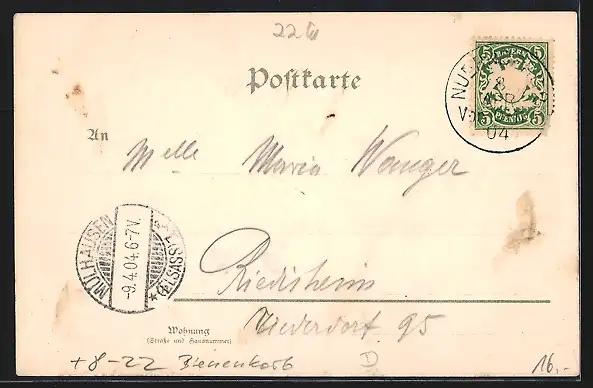 22
Postkarte
5 BAYERN 5
5 PFENNIG 5
8 APR
04
An
Melle Maria Wanger
MÜLHAUSEN
-9.4.04.6-7V.
(ELSASS)
Riedisheim
Niederdorf 95
Wohnung
(Straße und Hausnummer)
+8-22 Bienenkorb D 16.-